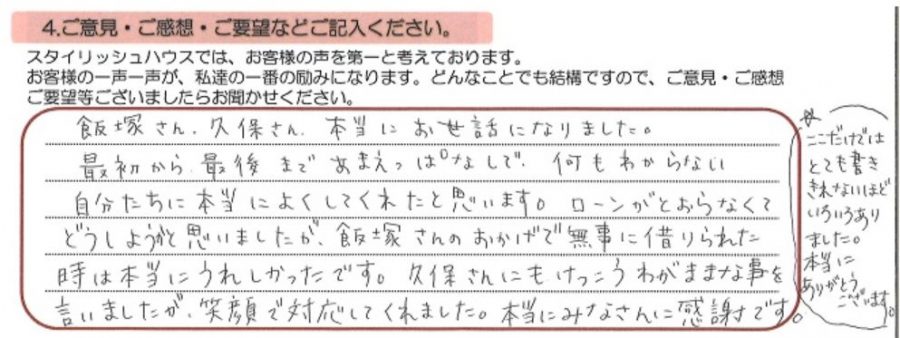 4.ご意見・ご感想・ご要望などご記入ください。
スタイリッシュハウスでは、お客様の声を第一と考えております。
お客様の一声一声が、私達の一番の励みになります。どんなことでも結構ですので、ご意見・ご感想
ご要望等ございましたらお聞かせください。
飯塚さん、久保さん、本当にお世話になりました。
最初から最後まであまえっぱなしで、何もわからない
自分たちに本当によくしてくれたと思います。ローンがとおらなくて
どうしようかと思いましたが、飯塚さんのおかげで無事に借りられた
時は本当にうれしかったです。久保さんにもけっこうわがままな事を
言いましたが、笑顔で対応してくれました。本当にみなさんに感謝です。
☆
ここだけでは
とても書き
きれないほど
いろいろあり
ました。
本当に
ありがとう
ございます。